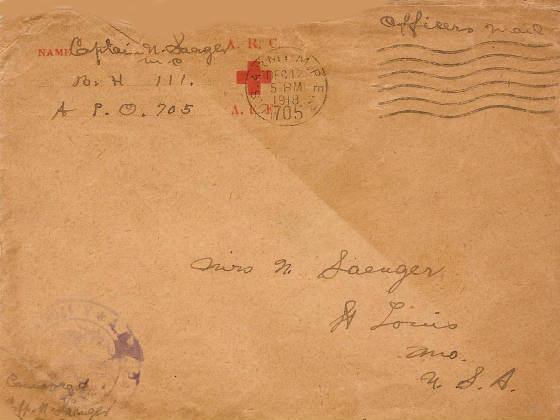 Officers Mail
NAME Capt N. Saenger A. R. C.
M C
B. H 111.
A P. O. 705
A. E. F.
DEC 12
5 PM
1918
705
Mrs N. Saenger
St Louis
Mo.
U. S. A.
Censored
N. Saenger